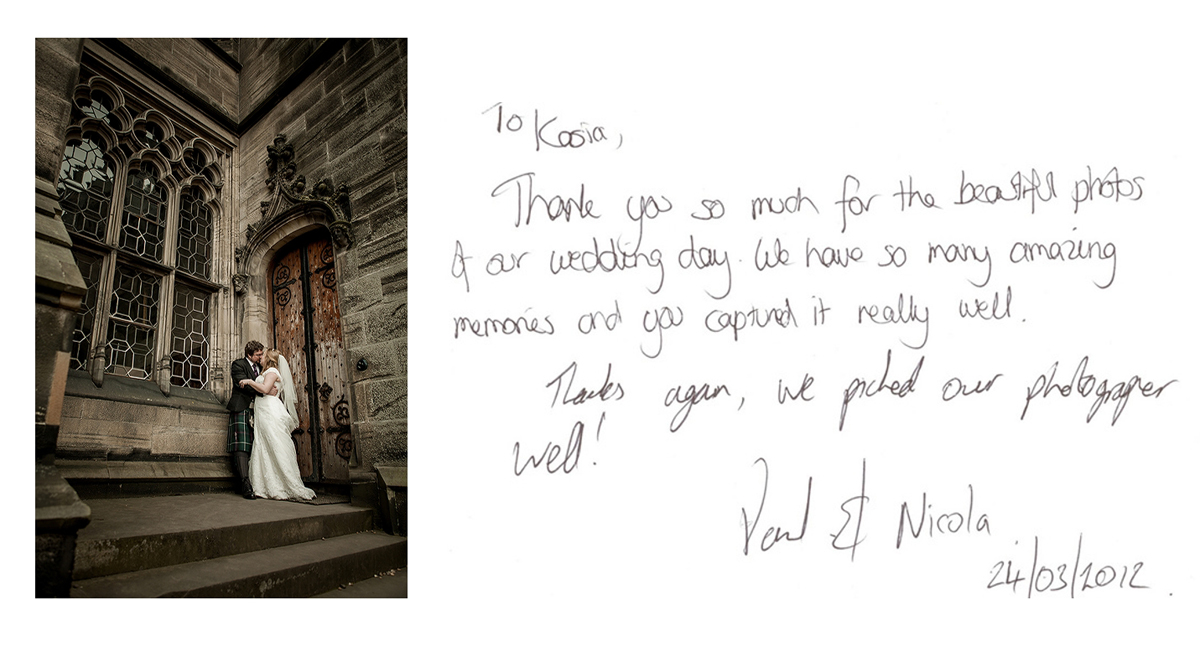 To Kasia,
Thank you so much for the beautiful photos
of our wedding day. We have so many amazing
memories and you captured it really well.
Thanks again, we picked our photograper
well!
Paul & Nicola
24/03/2012.